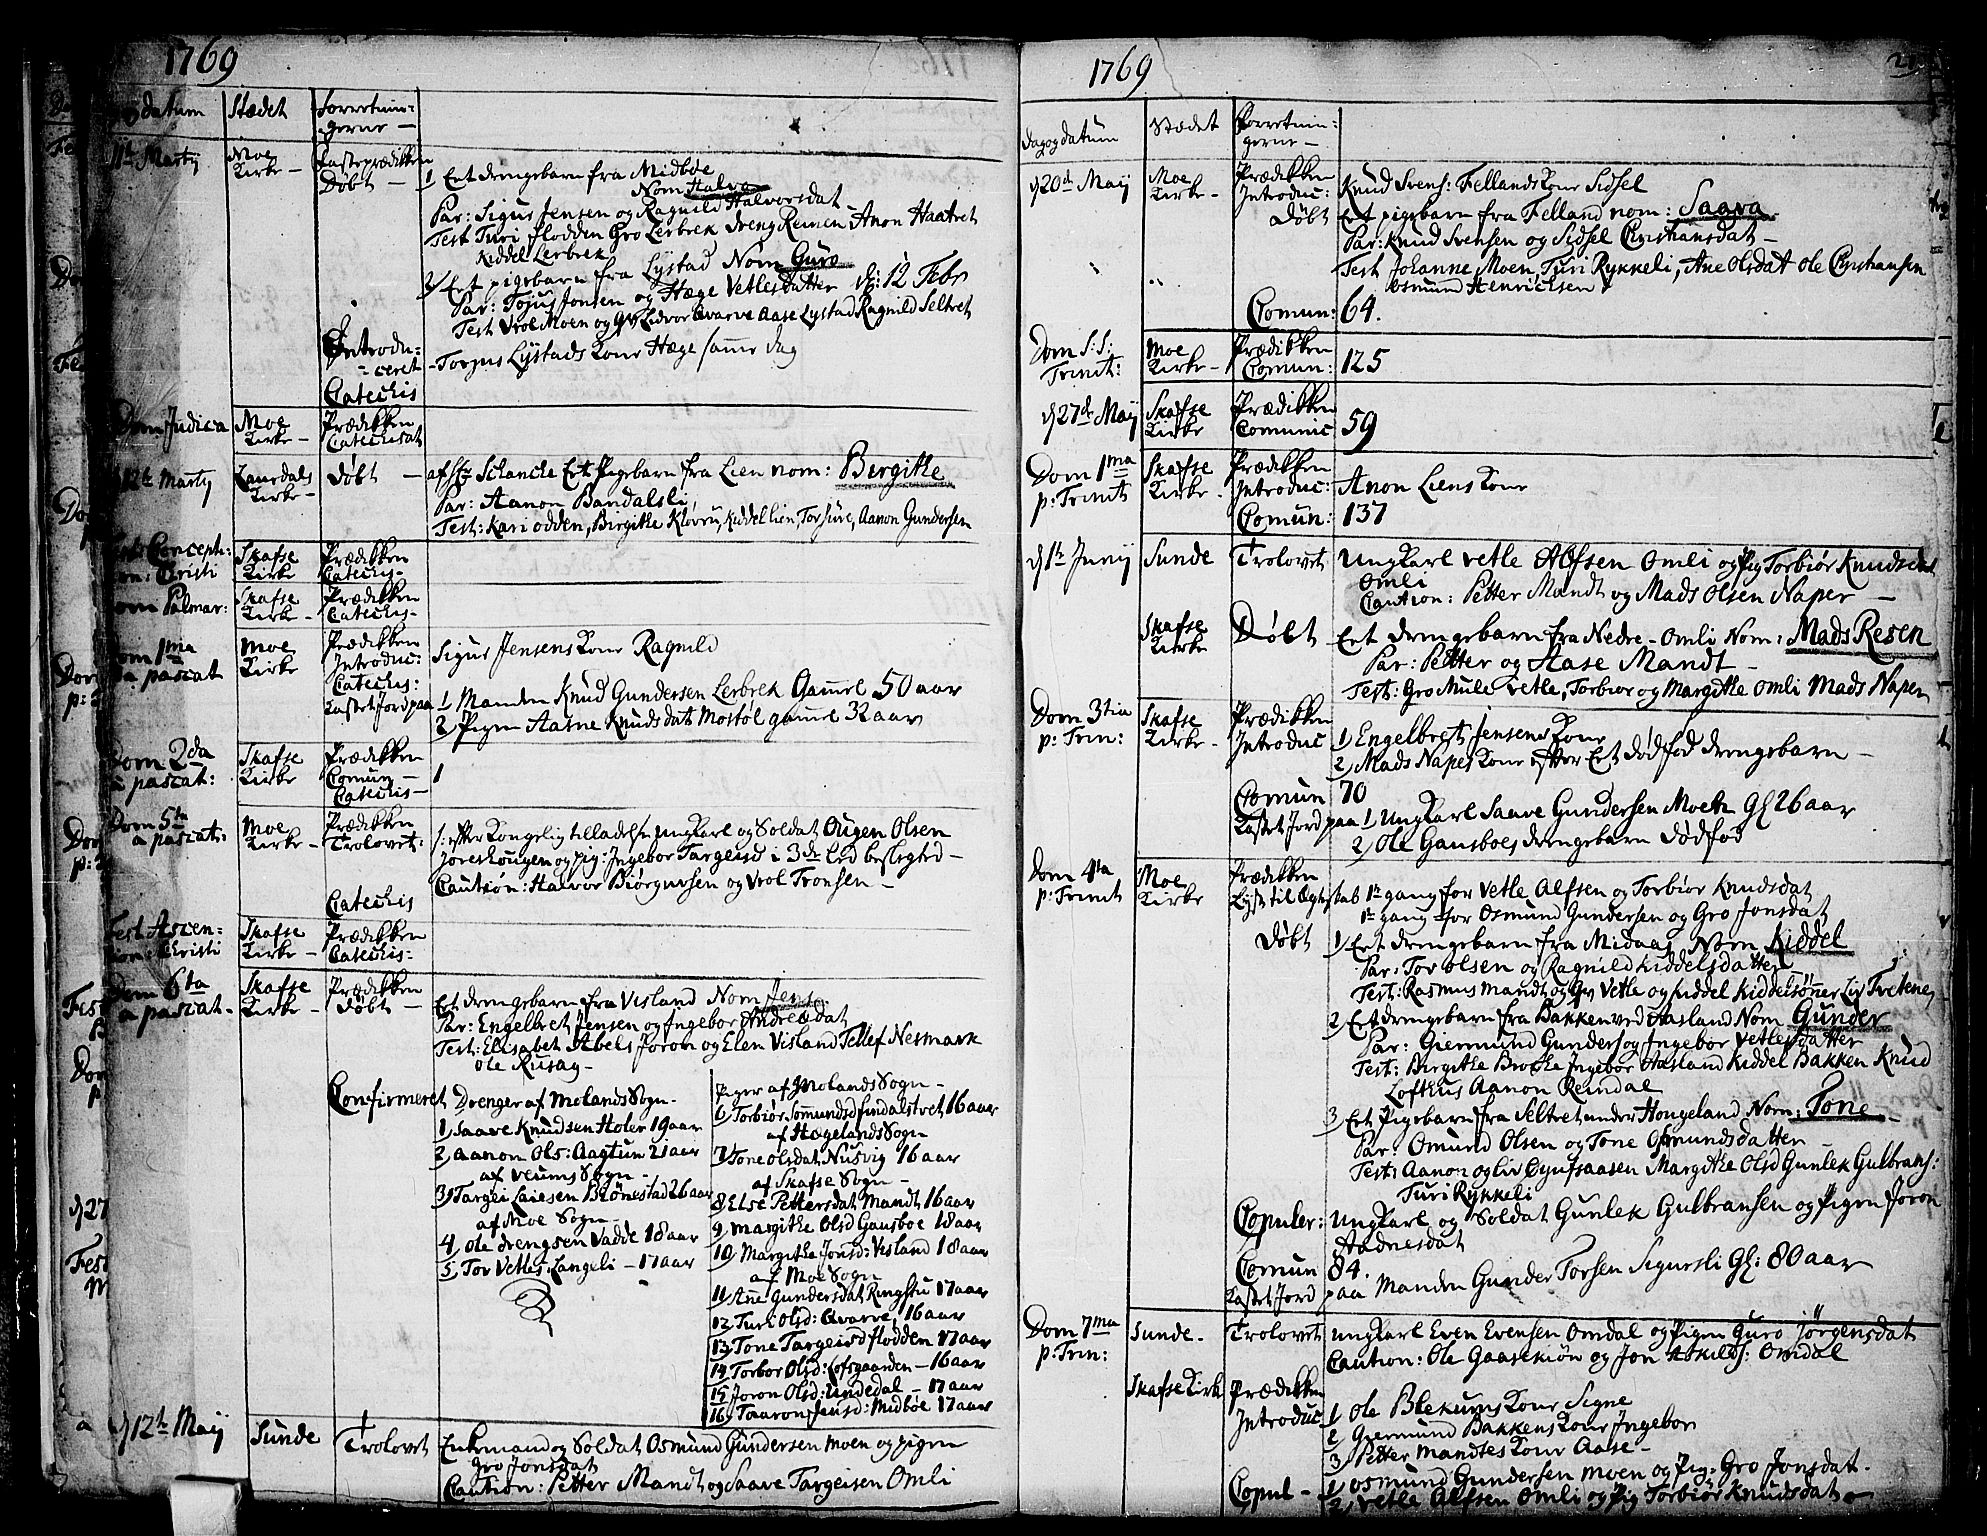 1769
og datum Stædet Forretnin-
gerne –
11te Martij Moe Kirke – Fasteprædiken
Døbt – 1 Eet drengebarn fra Midbøe
Nom Halvo
Par: Sigur Jensen og Ragnild Halvorsdat –
Test Turi flodden Gro Lerbrek dreng Reinen Anon Haatvet
Kiddel Lerbrek
2 Eet pigebarn fra Lystad Nom Guro
Par: Tojus Jonsen og Hæge Vetlesdatter d: 12 Febr
Test Vrol Moen og Lidvor Qvarve Aase Lystad Ragnild Seltvet
Introdu-
ceret – Torjus Lystads Kone Hæge samme dag
Catechis
Dom Judica Moe Kirke – Prædikken
Catechisat
12te Martij Laurdals Kirke – Døbt – af Hr Schancke Eet Pigebarn fra Lien nom: Birgithe
Par: Aanon Bandalsli
Test: Kari odden, Birgithe Kløvru, Kiddel Lien, Tor Jure, Aanon Gundersen
Concept:
Christi Skafse Kirke Prædikken
Catechis –
Dom Palmar: Skafse Kirke – Prædikken
Catechis –
Dom 1ma
a pascat Moe Kirke Prædikken
Introduc: Sigur Jensens Kone Ragnild
Catechis:
Kastet Jord paa 1 Manden Knud Gundersen Lerbrek Gamel 50 aar
2 Pigen Aasne Knudsdat Mostøl gamel 32 aar
Dom 2da
a pascat: Skafse Kirke Prædikken
Comun – 1
Catechis –
Dom 5ta
a pascat: Moe Kirke – Prædikken
Trolovet: /: efter Kongelig tilladelse ungKarl og Soldat Ougen Olsen
og pig: Ingebor Targeisd i 3de Led beslegted –
Caution: Halvor Biørgufsen og Vrol Tronsen –
Catechis
Fest Ascen-
sione Christi Skafse Kirke – Prædikken
Catechis –
Dom 6ta
a pascat – Skafse Kirke – Prædikken
Døbt – Eet drengebarn fra Visland Nom Jens
Par: Engelbret Jensen og Ingebor Andreædat
Test: Elisabet Abels Joron og Elen Visland Tellef Nesmark
Ole Rusag –
Confirmeret Drenger af Molands Sogn –
1 Saave Knudsen Holen 19 aar
2 Aanon Ols: Aagtun 21 aar
af Veums Sogn –
3 Targei Laiesen Blönestad 26 aar
af Moe Sogn –
4 Ole drengsen Vadde 18 aar
5 Tor Vetles: Langeli – 17 aar
Piger af Molands Sogn –
6 Torbiør Sommundsd Findalstvet 16 aar
af Hægelands Sogn
7 Tone Olsdat Nusvig 16 aar
af Skafse Sogn –
8 Else Pettersdat Mandt 16 aar
9 Margithe Olsd Gausboe 18 aar
10 Margithe Jonsd: Visland 18 aar
af Moe Sogn
11 Ane Gundersdat Ringstu 17 aar
12 Turi Olsd: Qvarve, 16 aar
13 Tone Targeisd flodden 17 aar
14 Torbor Olsd: Lofsgaarden – 16 aar
15 Joron Olsd: Undedal – 17 aar
16 Taaron Jensd: Midbøe 17 aar
d 12te Maij Sunde Trolovet Enkemand og Soldat Osmund Gundersen Moen og pigen
Gro Jonsdat
Caution: Petter Mandt og Saave Targeisen Omli
1769
Dag og datum Stædet Forretnin-
gerne –
d 20de Maij Moe Kirke – Prædikken
Introduc: Knud Svens: Fellands Kone Sidsel
Døbt Eet pigebarn fra Felland nom: Saava
Par: Knud Svensen og Sidsel Christiansdat –
Test Johanne Moen, Turi Rykkeli, Ane Olsdat Ole Christiansen
Osmund Henrichsen
Comun: 64.
Dom S:S:
Trinit: Moe Kirke – Prædikken
Comun: 125
d 27de Maij Skafse Kirke Prædikken
Comunic 59
Dom 1ma
p: Trinit Skafse Kirke – Prædikken
Introduc: Anon Liens Kone
Comun: 137
d 1te Junij Sunde Trolovet UngKarl Vetle Alfsen Omli og Pig Torbiør Knudsdat
Omli
Caution: Petter Mandt og Mads Olsen Naper –
Skafse Kirke Døbt Eet drengebarn fra Nedre – Omli Nom: Mads Resen
Par: Petter og Aase Mandt –
Test: Gro Mule Vetle, Torbiør og Margithe Omli Mads Napen
Dom 3tia
p: Trin: Skafse Kirke – Prædikken
Introduc 1 Engelbret Jensens Kone
2 Mads Napes Kone efter Eet dødfød drengebarn –
Comun 70
Kastet Jord paa 1 UngKarl Saave Gundersen Moen Gl 26 aar
2 Ole Gausboes drengebarn dødfød
Dom 4ta
p: Trinit Moe Kirke Prædikken
Lyst til Egteskab 1te gang for Vetle Alfsen og Torbiør Knudsdat
1te gang for Osmund Gundersen og Gro Jonsdat
Døbt 1 Eet drengebarn fra Midaas Nom Kiddel
Par: Tor Olsen og Ragnild Kiddelsdatter
Test: Rasmus Mandt og Vetle og Kiddel Kiddelsönner Liv Tvetene
2 Eet drengebarn fra Bakken ved Aasland Nom Gunder
Par: Giermund Gunders og Ingebor Vetlesdatter
Test: Birgithe Brocke Ingebor Aasland Kiddel Bakken Knud
Lofthus Aanon Reindal
3 Eet Pigebarn fra Seltvet under Hougeland Nom: Tone
Par: Omund Olsen og Tone Osmundsdatter –
Test: Aanon og Liv Margithe Olsd Gunlek Gulbrans:
Turi Rykkeli
Copuler: UngKarl og Soldat Gunlek Gulbransen og Pigen Joron
Aadnesdat
Comun 84.
Kastet Jord paa Manden Gunder Torsen Sigursli Gl: 80 aar
Dom 7ma
p: Trin: Sunde – Trolovet UngKarl Even Evensen Omdal og Pigen Guro Jörgensdat
Caution: Ole Gaasekiøn og Jon Askilds: Omdal
Skafse Kirk Prædikken
Introduc 1 Ole Blekums Kone Signe
2 Giermund Bakkens Kone Ingebor
3 Petter Mandtes Kone Aase –
Copul – 1 Osmund Gundersen Moen og Pig: Gro Jonsdat –
2 Vetle Alfsen Omli og Pig Torbiør Knudsdat –